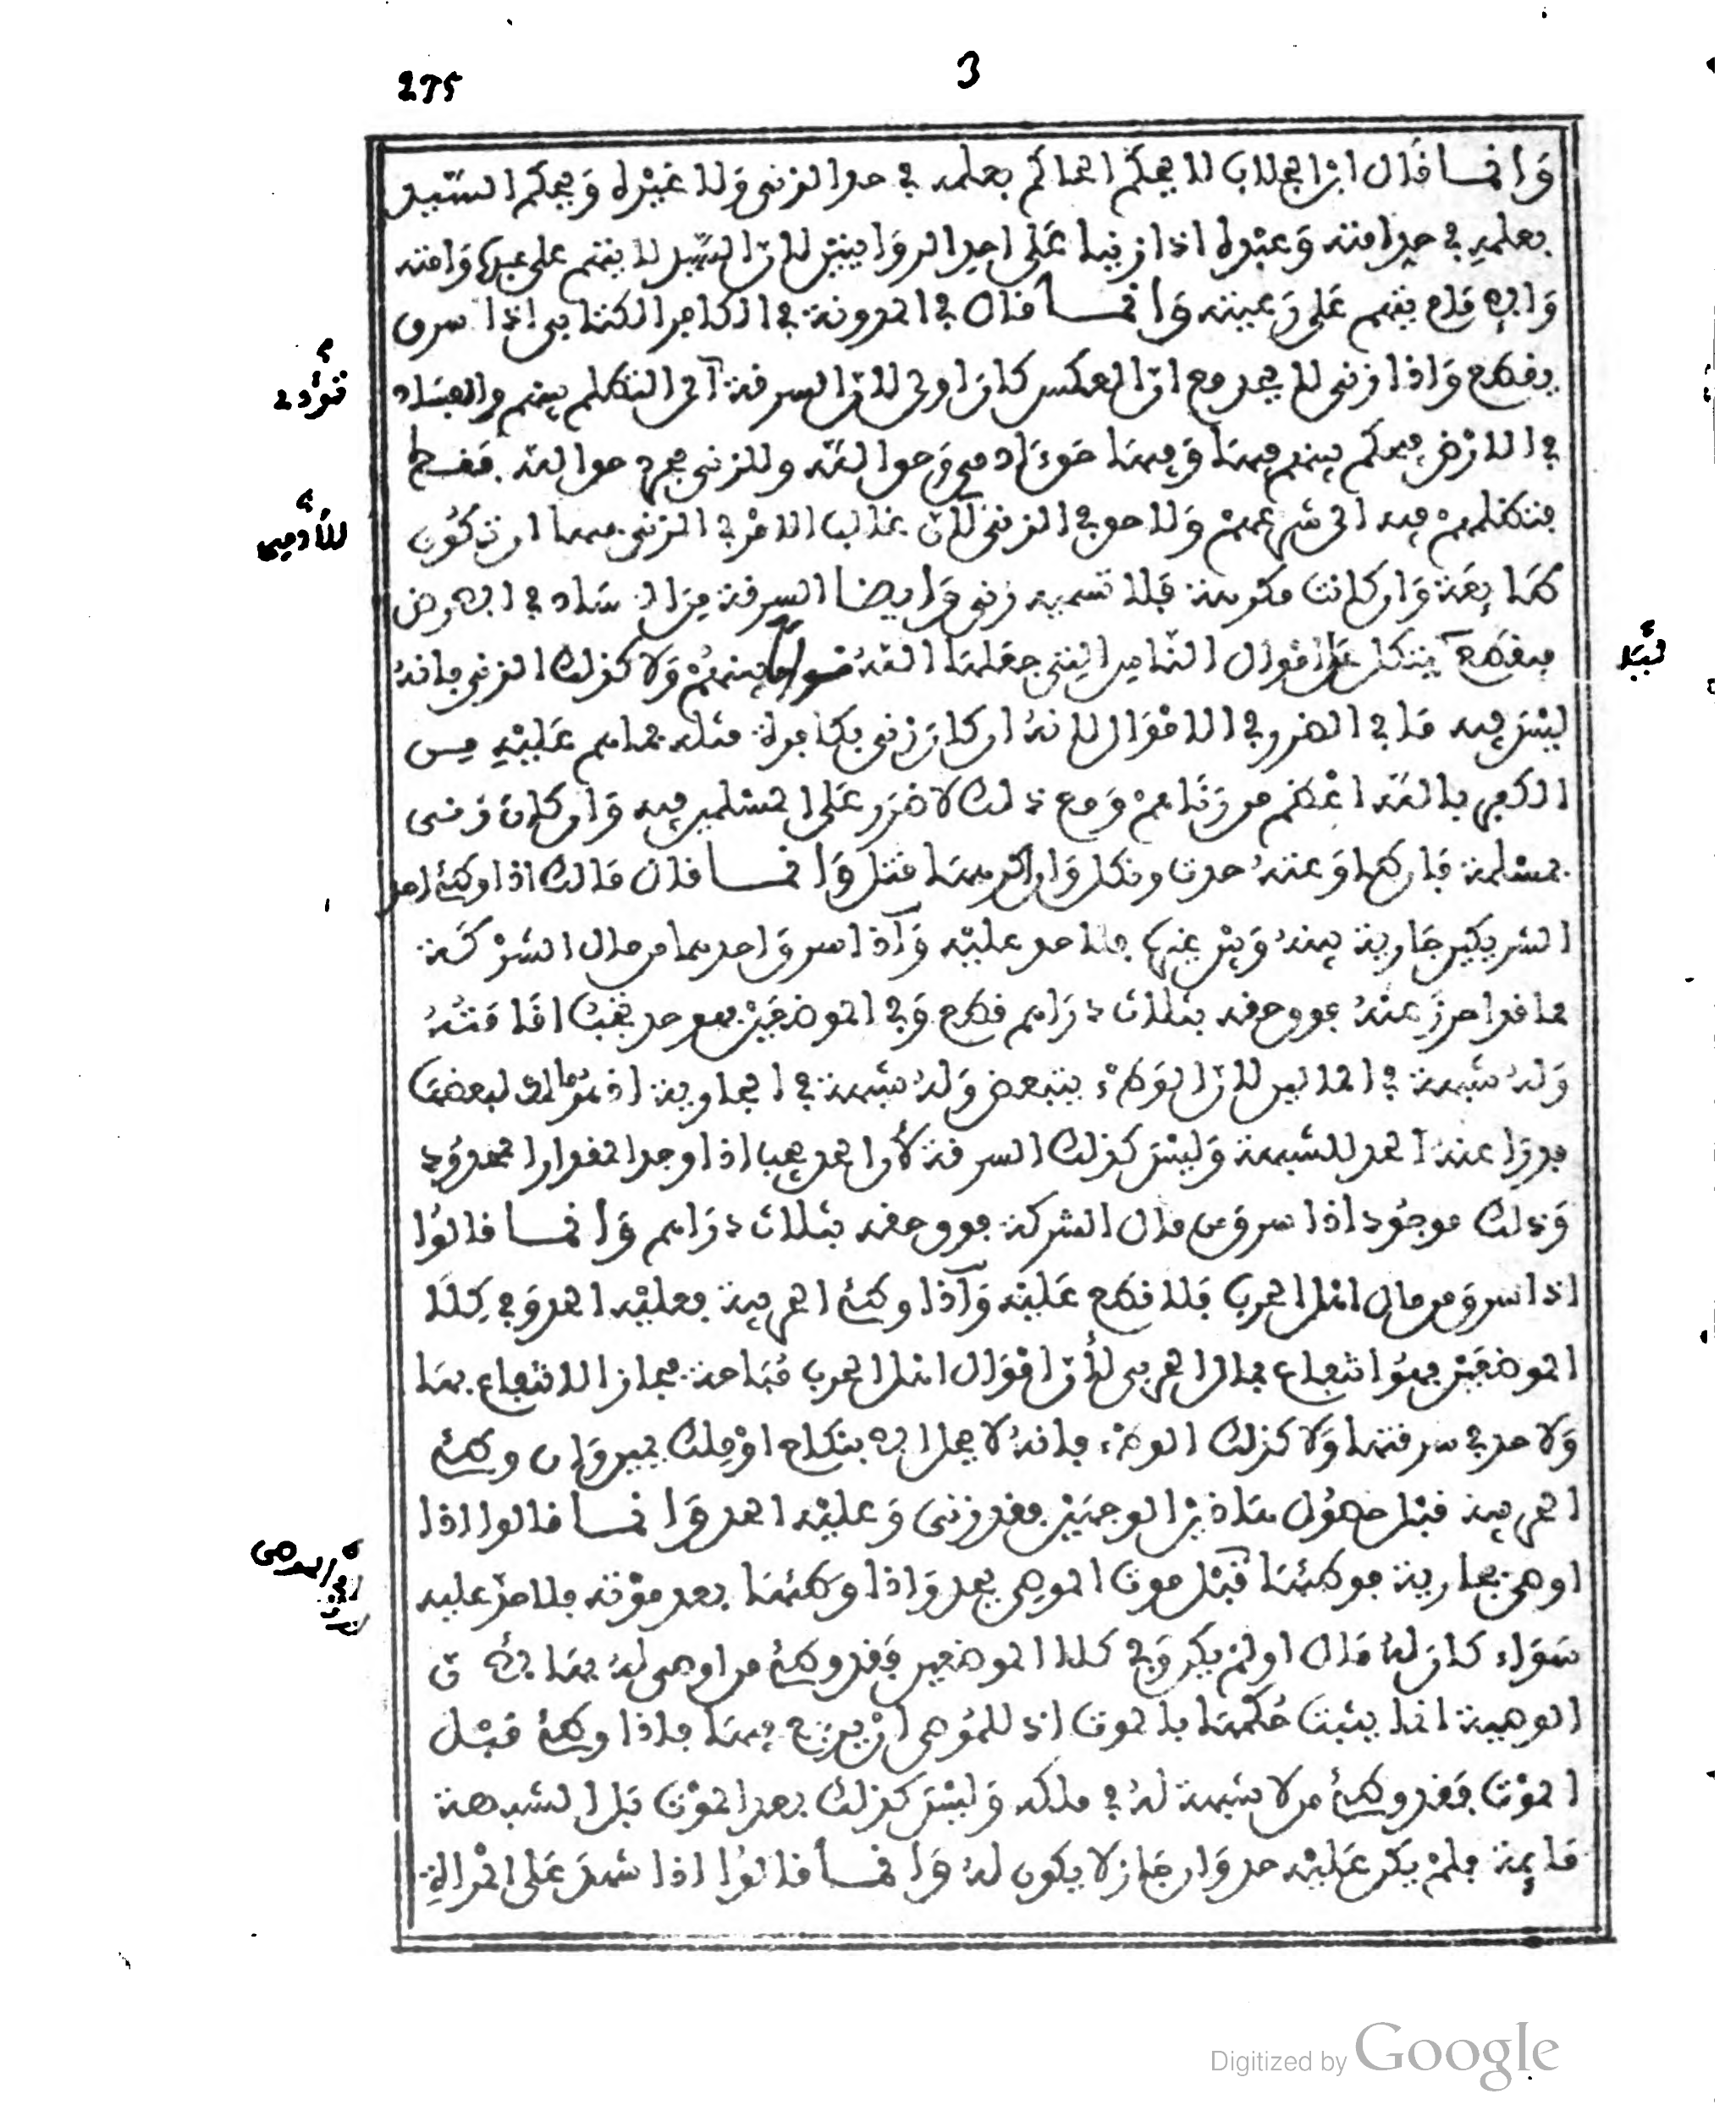 3
275
وَانما قَال ابن الجلاب لا يحكم الحاكم بعلمه في حد الزنى وَلا غيْره وَيحكم السّيد
بعلمه في حد امته وَعبْده اذا زنيا عَلى احدى الروايتين لان السّيد لا يتهم على عبده وَامته
وَالحاكم يتهم عَلى رَعيته وَانما قال في المدونة في الكافر الكتابي اذا سرق
يقطع وَاذا زنى لا يحد مع ان العكس كان اولى لان السرقة الى التظلم بينهم والفسَاد
في الارْض فيحكم بينهم فيهَا وَفيهَا حق ءَادمي وَحق الله وللزنى مجرد حق الله فقط
فتظلمهمْ فيه الى شرعهمْ وَلا حق في الزنى لان غالب الامْر في الزنى بها ان تكُون
طَايعَة وَان كانت مكرهة فلا تسميه زنى وَايضا السرقة مِن الفسَاد في الارض
فيقطع ليلا يتطرق الى امْوال النّاس التي جعلهَا الله قواما بينهُمْ وَلا كذلك الزنى فانهُ
ليْسَ فيه مَا في الضرر في الامْوَال لانهُ ان كانَ زنى بكافرة مثله فما هم عَليْهِ من
الكفر بالله اعْظم من زنَاهمْ وَمع ذلك لا ضرَر عَلى المسْلمين فيه وَان كان زنى
بمسْلمة فان طاوعتهُ حدت ونكل وَان اكرهها قتل وَانما قال مَالك اذا وطئ احد
الشريكين جَارية بينهُ وَبيْن غيْره فلا حد عليْه وَاذا سرق احدهما من مال الشرْكَة
مما قد احرزَ عنهُ فوق حقه بثلاث دَرَاهم قطع وَفي الموضعَيْن فهو حد يجب اقامَتهُ
وَلهُ شبهة في المالين لان الوَطْء يتبعض وَلهُ شبهة في الجارية اذ هُو مالك لبعضهَا
فدرئ عنهُ الحد للشبهة وَليْسَ كذلك السرقة لأن الحد يجب اذا وجد المقدار المحدُود
وَذلك موجُود اذا سرق من مال الشركة فوق حقه بثلاث دَرَاهم وَانما قالوُا
اذا سرق من مال اهْل الحرب فلا قطع عَليْه وَاذا وطئ الحربية فعليْه الحد وَفي كِلَا
الموضعَيْن فهوُ انتفاع بمال الحربي لأن امْوَال اهْل الحرب مُبَاحة فجاز الانتفاع بهَا
وَلا حد في سرقتهَا وَلا كذلك الوطْء فانهُ لا يحل الا بنكاح اوْ ملك يمين وَان وطئ
الحربية قبْل حصُول هَاذيْن الوجهيْن فقد زنى وَعليْه الحد وَانما قالوا اذا
اوصى بجارية فوطئهَا قبْل موت الموصي يحد وَاذا وَطئهَا بعد موْته فلا حدّ عليه
سَوَاء كان لهُ مَال او لمْ يكن وَفي كلا الموضعين فقد وطئ من اوصى لهُ بهَا لأن
الوصية انما يثبت حُكمهَا بالموت اذ للمُوصي ان يرجع فيهَا فاذا وطئ قبْل
الموْت فقد وطئ من لا شبهة لهُ في ملكه وَليْسَ كذلك بعد الموْت فان الشبهة
قايمة فلمْ يكن عَليْه حد وَان جَاز لا يكون لهُ وَانما قالوُا اذا شهدَ عَلى المرْأة
تؤدي
للأدمي
ليلا